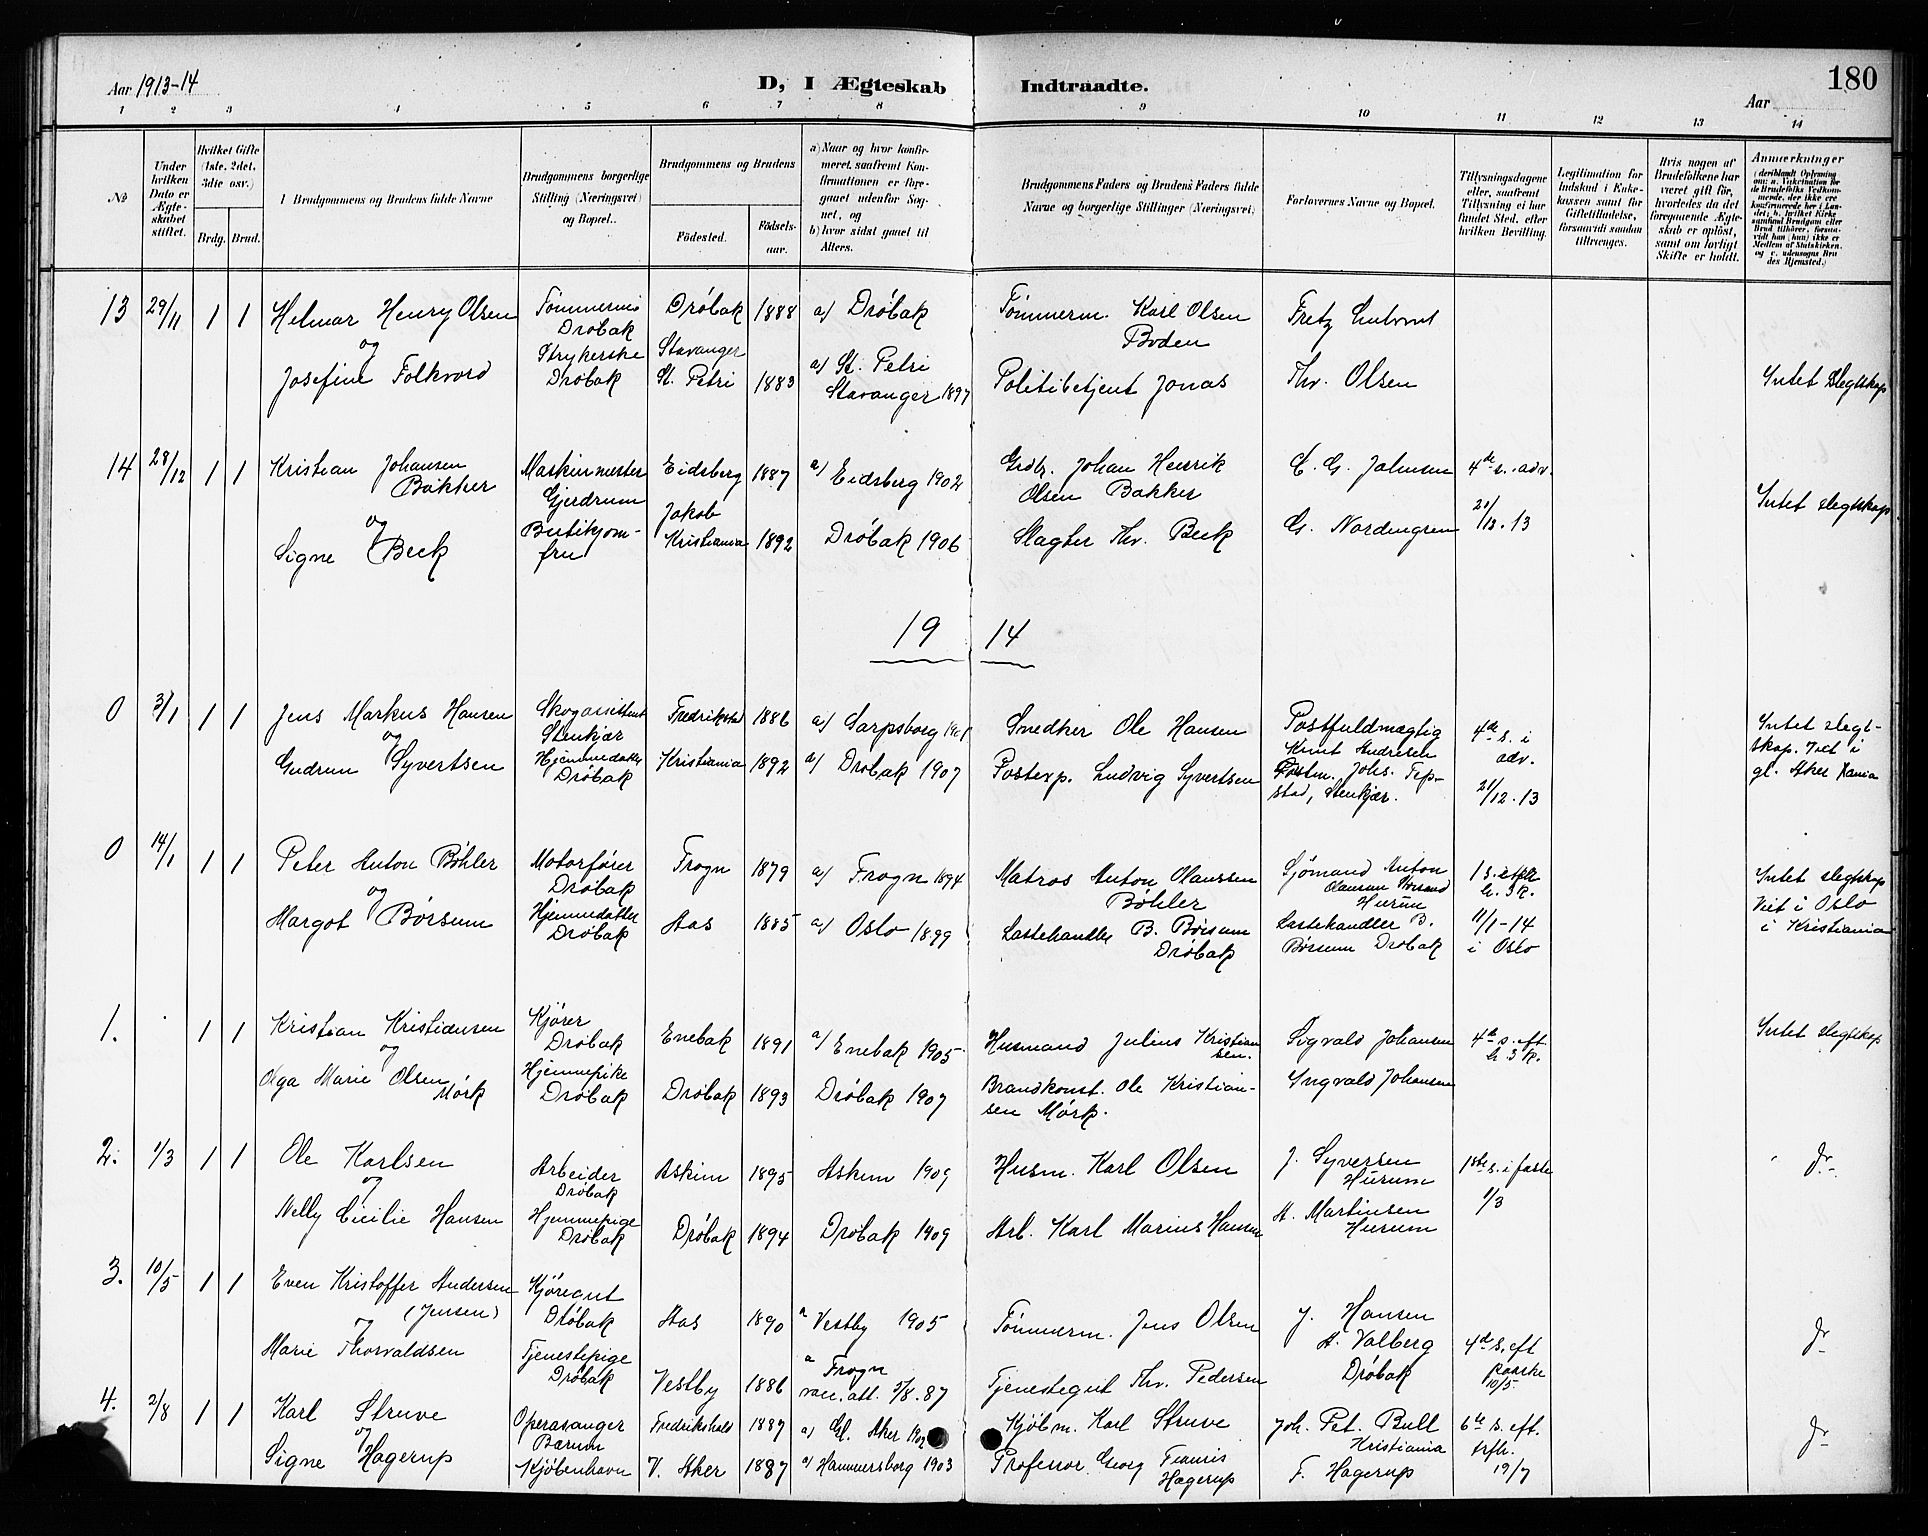 Aar 1913-14
D, I Ægteskab Indtraadte.
180
Aar
1 2 3 4 5 6 7 8 9 10 11 12 13 14
No
Under hvilken Dato er Ægteskabet stiftet.
Hvilket Gifte (1ste, 2det, 3die osv.)
Brdg. Brud.
I Brudgommens og Brudens fulde Navne
Brudgommens borgerlige Stilling (Næringsvei) og Bopæl.
Brudgommens og Brudens
Fødested. Fødselsaar.
a) Naar og hvor konfirmeret, saafremt Konfirmationen er foregaaet udenfor Sognet, og
b) hvor sidst gaaet til Alters.
Brudgommens Faders og Brudens Faders fulde Navne og borgerlige Stillinger (Næringsvei)
Forlovernes Navne og Bopæl.
Tillysningsdagene eller, saafremt Tillysning ei har fundet Sted, efter hvilken Bevilling.
Legitimation for Indskud i Enkekassen samt for Giftetilladelse, forsaavidt saadan tiltrænges.
Hvis nogen af Brudefolkene har været gift før, hvorledes da det foregaaende Ægteskab er opløst, samt om lovligt Skifte er holdt.
Anmærkninger
13 29/11 1 1 Helmar Henry Olsen Drøbak Drøbak 1888 a) Drøbak Tømmerm. Karl Olsen
Boden
og
Josefine Folkvord Strykerske Drøbak Stavanger St. Petri 1883 a) St. Petri Stavanger 1897 Politibetjent Jonas Thv. Olsen Intet Slegtskap
14 28/12 1 1 Kristian Johansen Bakker Maskinmester Gjerdrum Eidsberg 1887 a) Eidsberg 1902 Johan Henrik Olsen Bakker 4de s. adv. Intet slegtskap
og
Signe Beck Butikjomfru Jakob Kristiania 1892 Drøbak 1906 Slagter Thv. Beck G. Nordengren 21/12. 13
1914
0 3/1 1 1 Jens Markus Hansen Skogassistent Stenkjær Fredrikstad 1886 a) Sarpsborg Snedker Ole Hansen Postfuldmægtig Knut Andresen 4de s. i adv. Intet slegtskap.
og
Gudrun Syvertsen Hjemmedatter Drøbak Kristiania 1892 a) Drøbak 1907 Postexp. Ludvig Syvertsen Postm. Johs. stad, Stenkjær. 21/12. 13 gl. Aker Kania
0 14/1 1 1 Peter Anton Bøhler Motorfører Drøbak Frogn 1879 a) Frogn 1894 Matros Anton Olaussen Bøhler Sjømand Anton Olaussen Hurum 1 s. eft. h. 3 k. Intet slegtskap
og
Margot Børsum Hjemmedatter Drøbak Aas 1885 a) Oslo 1899 Lastehandler B. Børsum Drøbak Lastehandler B. Børsum Drøbak 11/1-14 i Oslo Viet i Oslo i Kristiania
1. 1 1 Kristian Kristiansen Kjører Drøbak Enebak 1891 a) Enebak 1905 Husmand Julius Kristiansen. Sigvald Johansen 4de s. eft. h. 3 k. Intet slegtskap
og
Olga Marie Olsen Mørk Hjemmepike Drøbak Drøbak 1893 Drøbak 1907 Brandkonst. Ole Kristiansen Mørk. Yngvald Johansen
2. 1/3 1 1 Ole Karlsen Arbeider Drøbak Askim 1895 Askim 1909 Husm. Karl Olsen J. Syversen Hurum 1ste s. i faste 1/3
og
Nelly Cicilie Hansen Hjemmepige Drøbak Drøbak 1894 Drøbak 1909 Arb. Karl Marius Hansen A. Martinsen Hurum
3. 10/5 1 1 Even Kristoffer Andersen (Jensen) Kjøregut Drøbak Aas 1890 a Vestby 1905 Tømmerm. Jens Olsen J. Hansen
og
Marie Thorvaldsen Tjenestepige Drøbak Vestby 1886 a Frogn vac. att. 5/8. 87 Tjenestegut Thv. Pedersen A. Valberg Drøbak 4de s. eft paaske 10/5
4. 2/8 1 1 Karl Struve Operasanger Bærum Fredrikshald 1887 a) Gl. Aker 1902 Kjøbm. Karl Struve Joh. Pet. Bull Kristiania 6te s. eft. trfh.
og
Signe Hagerup Kjøbenhavn V. Aker 1887 a) Hammersborg 1903 Professor Georg Francis Hagerup F. Hagerup 19/7